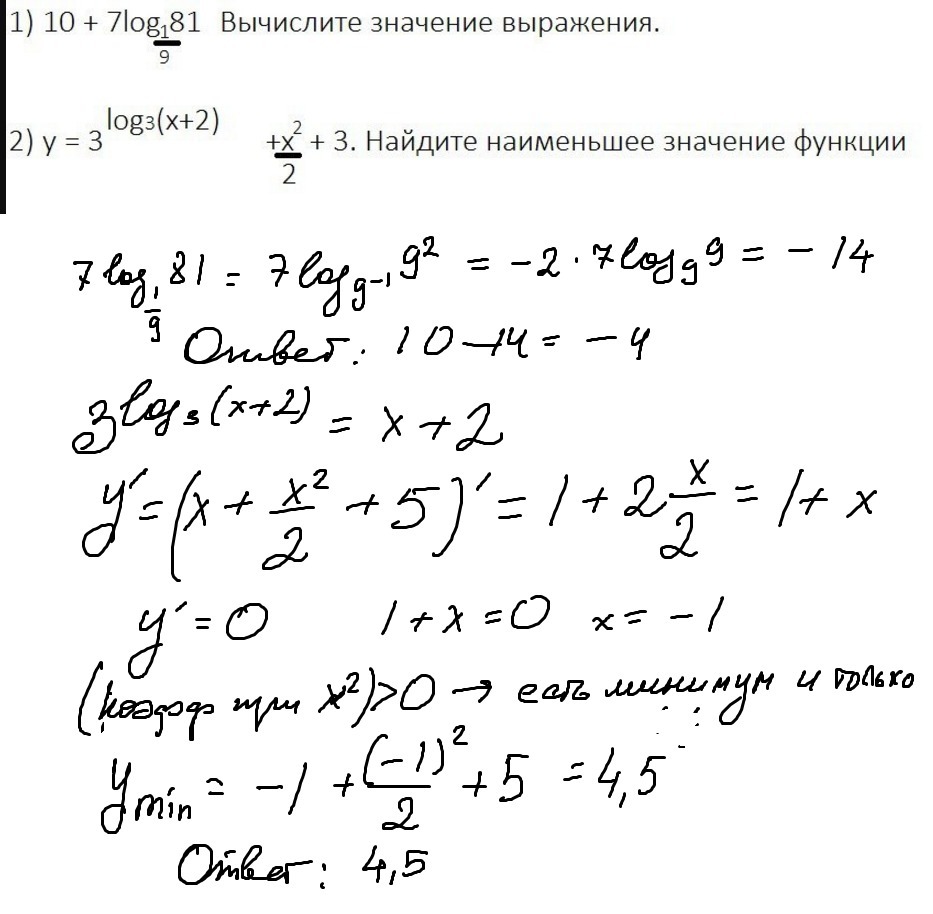 1) 10 + 7log₁/₉81 Вычислите значение выражения.
2) y = 3^log₃(x+2) + x²/2 + 3. Найдите наименьшее значение функции
7log₁/₉81 = 7log₉₋₁9² = -2·7log₉9 = -14
Ответ: 10-14 = -4
3^log₃(x+2) = x+2
y' = (x + x²/2 + 5)' = 1 + 2x/2 = 1 + x
y' = 0 1+x=0 x=-1
(коэф при x²)>0 → есть минимум и только
y min = -1 + (-1)²/2 + 5 = 4,5
Ответ: 4,5